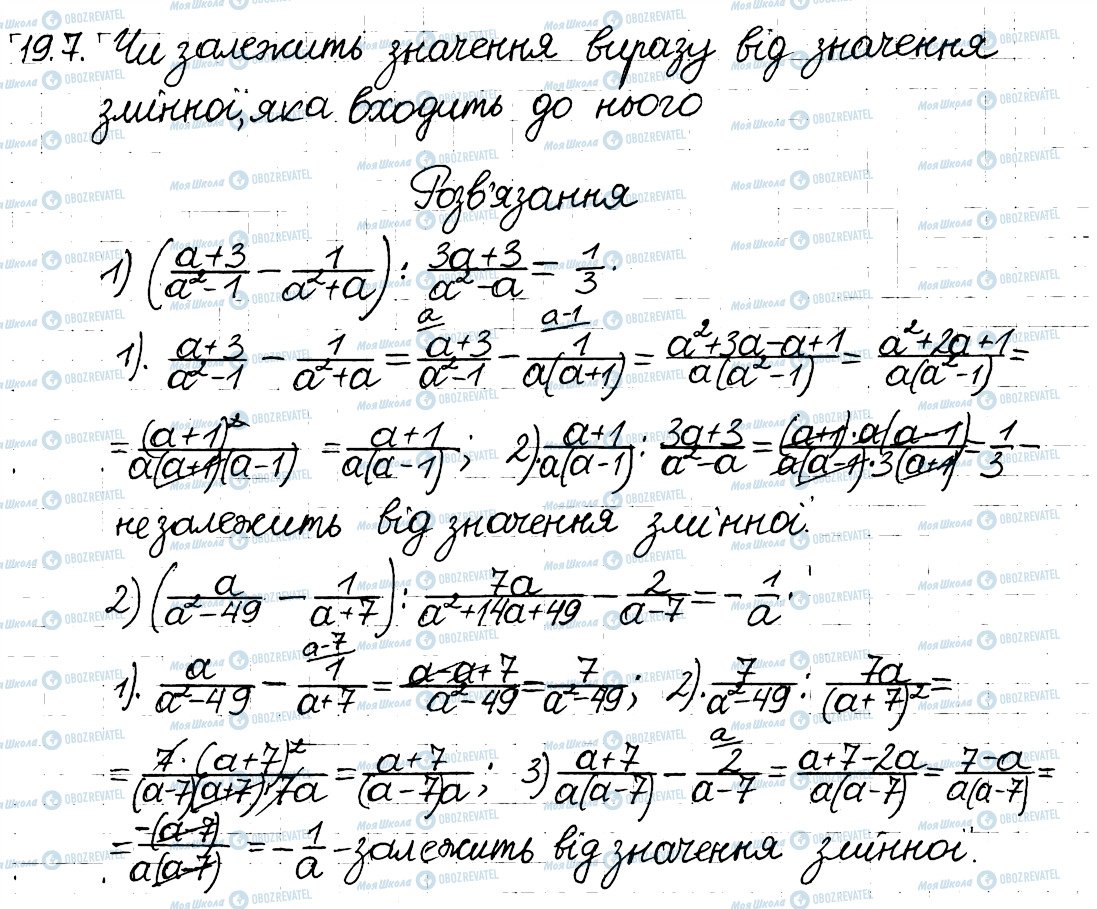 19.7. Чи залежить значення виразу від значення
змінної, яка входить до нього
Розв'язання
1) ((a+3)/(a²-1) - 1/(a²+a)) : (3a+3)/(a²-a) = 1/3.
1). (a+3)/(a²-1) - 1/(a²+a) = (a+3)/(a²-1) ^a - 1/(a(a+1)) ^(a-1) = (a²+3a-a+1)/(a(a²-1)) = (a²+2a+1)/(a(a²-1)) =
= (a+1)²/(a(a+1)(a-1)) = (a+1)/(a(a-1)); 2). (a+1)/(a(a-1)) : (3a+3)/(a²-a) = ((a+1)·a(a-1))/(a(a-1)·3(a+1)) = 1/3 -
не залежить від значення змінної.
2) (a/(a²-49) - 1/(a+7)) : 7a/(a²+14a+49) - 2/(a-7) = -1/a.
1). a/(a²-49) - 1/(a+7) ^(a-7) = (a-a+7)/(a²-49) = 7/(a²-49); 2). 7/(a²-49) : 7a/(a+7)² =
= (7·(a+7)²)/((a-7)(a+7)·7a) = (a+7)/((a-7)a); 3) (a+7)/(a(a-7)) - 2/(a-7) ^a = (a+7-2a)/(a(a-7)) = (7-a)/(a(a-7)) =
= -(a-7)/(a(a-7)) = -1/a - залежить від значення змінної.
МояШкола OBOZREVATEL